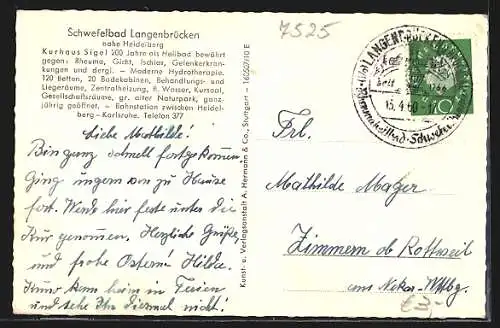 7525
Schwefelbad Langenbrücken
nahe Heidelberg
Kurhaus Sigel 200 Jahre als Heilbad bewährt
gegen: Rheuma, Gicht, Ischias, Gelenkerkran-
kungen und dergl. — Moderne Hydrotherapie.
120 Betten, 20 Badekabinen, Behandlungs- und
Liegeräume, Zentralheizung, fl. Wasser, Kursaal,
Gesellschaftsräume, gr. alter Naturpark, ganz-
jährig geöffnet. - Bahnstation zwischen Heidel-
berg—Karlsruhe. Telefon 377
Liebe Mathilde!
Bin ganz schnell fortgekommen
Ging ungern von zu Hause
fort. Werde hier feste unter die
Kur genommen. Herzliche Grüße
und frohe Ostern! Hilde.
kann heim in Ferien
und sehe Ihn diesmal nicht!
Kunst- u. Verlagsanstalt A. Hermann & Co., Stuttgart - 160507/10 E
LANGENBRÜCKEN
1766
15.4.60
10
Frl.
Mathilde Mager
Zimmern ob Rottweil
am Neckar - Wttbg.